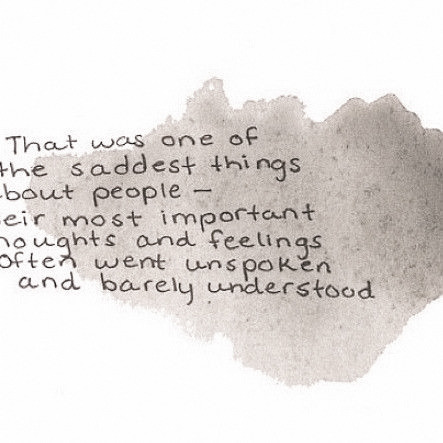 That was one of
the saddest things
bout people —
eir most important
houghts and feelings
often went unspoken
and barely understood